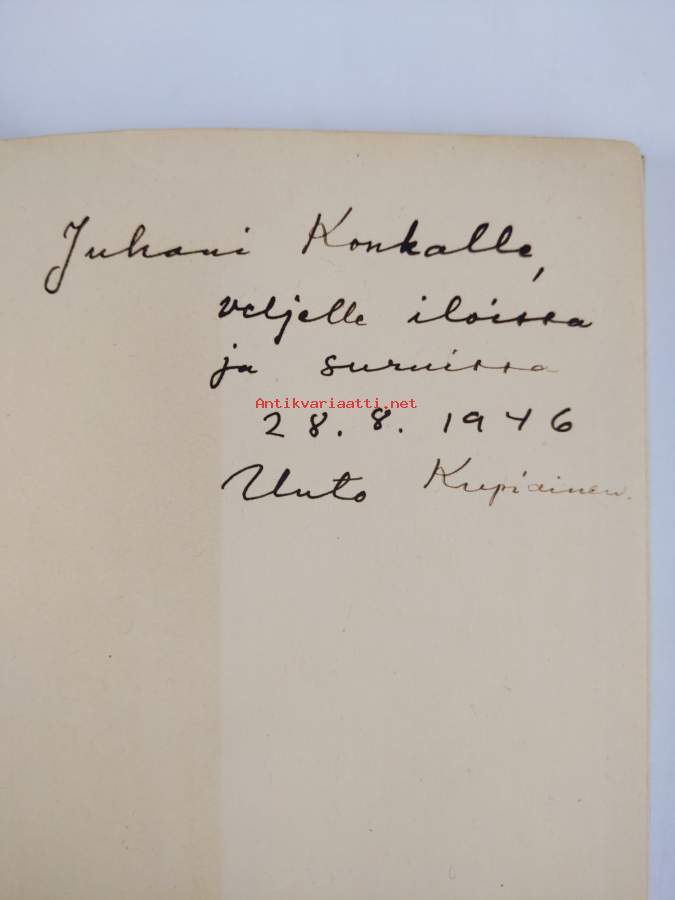 Juhani Konkalle,
veljelle iloissa
ja suruissa
Antikvariaatti.net
28.8. 1946
Unto Kupiainen.